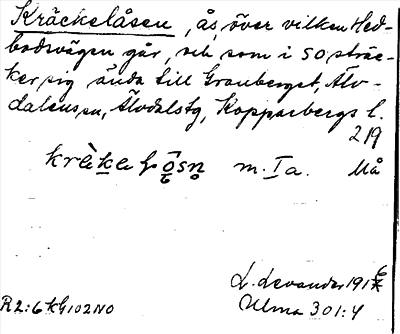 Kräckelåsen, ås, över vilken Hed-
bodvägen går, och som i SO sträc-
ker sig ända till Granberget, Älv-
dalens sn, Älvdals tg, Kopparbergs l.
219
m. Ia. Må
L. Levander 191
R2:6 kG102NO
Ulma 301:4